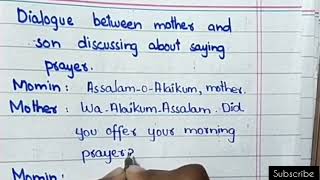 Dialogue between mother and
son discussing about saying
prayer.
Momin: Assalam-o-Alaikum, mother.
Mother: Wa-Alaikum-Assalam. Did
you offer your morning
prayer?
Momin:
Subscribe